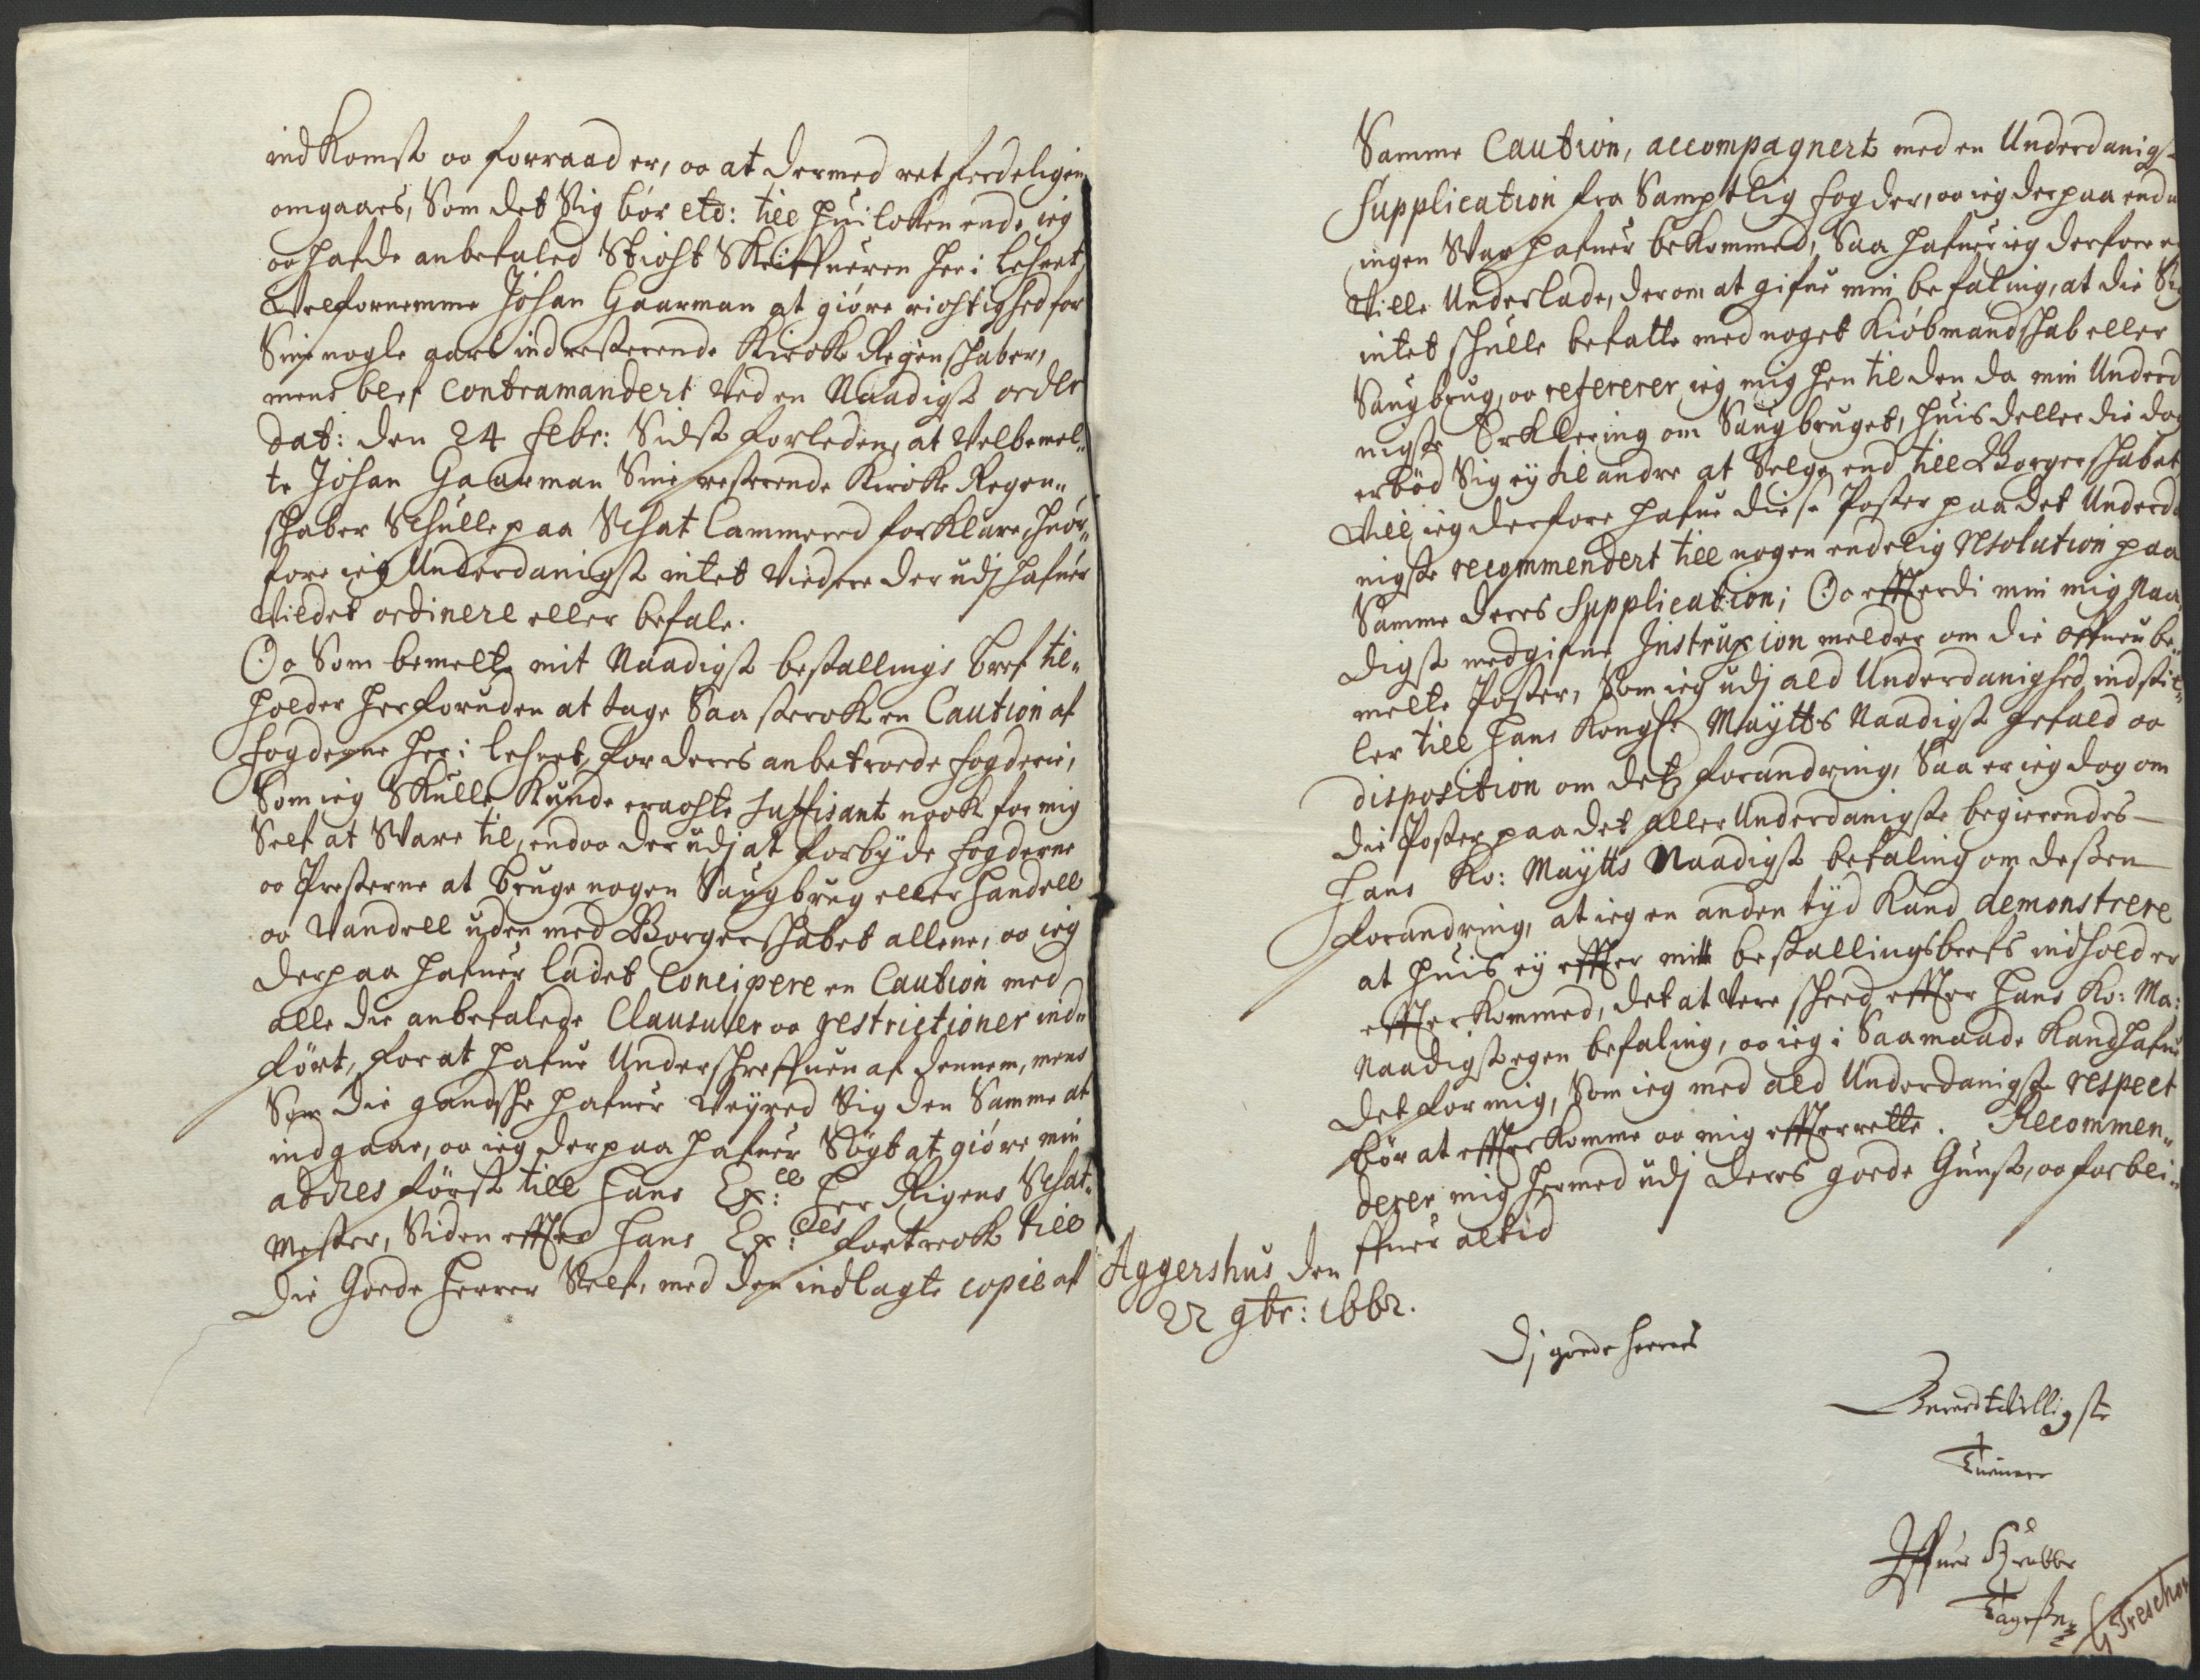 indkomst oc forraad er, oc at dermed retferdeligen
omgaaes, Som det Sig bör etc: till huilcken ende ieg
oc hafde anbefaled Sticht Skriffueren her i Lehnet
Velfornemme Johan Gaarman at giöre richtighed for
Sine nogle aars indresterende Kircke Regenschaber,
mens blef contramandert Ved en Naadigst ordre
dat: den 24 febr: Sidst forleden, at Velbemel„
te Johan Gaarman Sine resterende Kircke Regen„
schaber Schulle paa Schat Cammered forklare, huor„
fore ieg Underdanigst intet Videre der udj hafuer
Vildet ordinere eller befale.
Oc Som bemelte mit Naadigst bestallings bref til„
holder herforuden at tage Saa sterck en Caution af
fogderne her i Lehnet, for deres anbetroede fogderie,
Som ieg Skulle Kunde erachte suffisant nock for mig
Self at Svare til, endoc der udj at forbyde fogderne
oc Presterne at bruge nogen Saugbrug eller handell
oc Vandell uden med Borgerschabet allene, oc ieg
derpaa hafuer ladet Concipere en Caution med
alle die anbefalede Clausuler oc restrictioner ind„
fört, for at hafue Underschreffuen af dennem, mens
Som die gandsche hafuer Veyred Sig den Samme at
indgaae, oc ieg derpaa hafuer Sögt at giöre min
addres först till Hans Ex:ce Her Rigens Schat„
Mester, Siden effter Hans Ex:ces fortreck till
die Goede Herrer Self, med den indlagte copie af
Samme Caution, accompagnert med en Underdanigst
Supplication fra Samptlig fogder, oc ieg derpaa endnu
ingen Svar hafuer bekommed, Saa hafuer ieg derfore
Ville Underlade, derom at gifue min befaling, at die Sig
intet schulle befatte med noget Kiöbmandschab eller
Saugbrug, oc refererer ieg mig hen til den da min Underd
nigste Erklering om Saugbruget, huis deller die dog
erböd Sig ey til andre at Selge end till Borgerschabet
Vill ieg derfore hafue diese Poster paa det Underda
nigste recommendert till nogen endelig resolution paa
Samme deres Supplication; Oc effterdi min mig Naa„
digst medgifne Instruxion melder om die offuenbe„
melte Poster, Som ieg udj ald Underdanighed indstil„
ler till Hans Kongl: Maytts Naadigst gefald oc
disposition om detz forandring, Saa er ieg dog om
die Poster paa det aller Underdanigste begierendes
Hans Ko: Maytts Naadigst befaling om dessen
forandring, at ieg en anden tyd Kand demonstrere
at huis ey effter mitt bestallingsbrefs indhold er
effterkommed, det at Vere scheed effter Hans Ko: Ma:
Naadigst egen befaling, oc ieg i Saa maade Kand hafue
det for mig, Som ieg med ald Underdanigste respect
bör at effterkomme oc mig effterrette. Recommen„
derer mig hermed udj deres goede Gunst, oc forbli„
ffuer altid
Aggershus den
22 9br: 1662.
Dj goede herrers
Tienere
Iffuer Krabbe
G Treschow